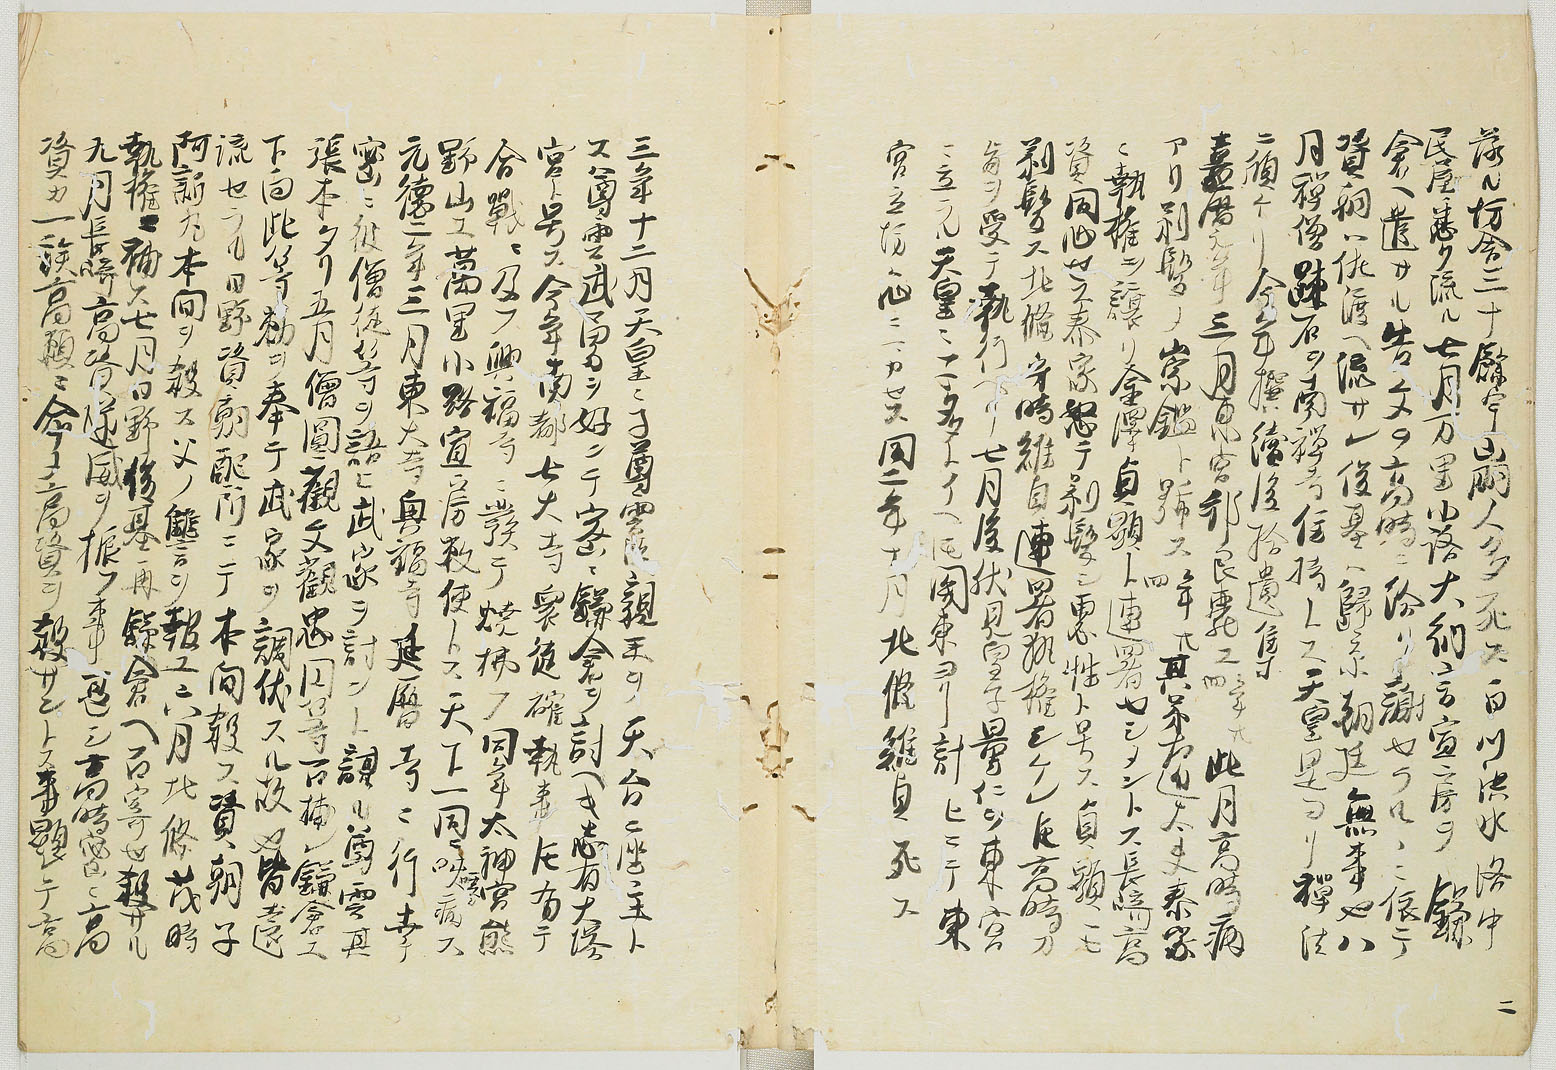 落ル坊舎三十餘宇山崩人多死ス白川洪水洛中
民屋悉ク流ル七月万里小路大納言宣房ヲ鎌
倉ヘ遣サル告文ヲ高時ニ給リ謝セラルヽニ依テ
資朝ハ佐渡ヘ流サレ俊基ハ歸京朝廷無事也八
月禅僧踈石ヲ南禅寺住持トス天皇是ヨリ禅法
ニ傾ケリ今年撰續後拾遺集
嘉暦元年三月東宮邦良薨ス 此月高時病
アリ剃髪ノ崇鑑ト号ス年廿四其弟左近大夫泰家
ニ執権ヲ譲リ金澤貞顕ト連署セシメントス長崎高
資同心セス泰家怒テ剃髪シ恵性ト号ス貞顕ニモ
剃髪ス北條守時維貞連署執権シケレ𪜈高時カ
旨ヲ受テ執行ヘリ七月後伏見皇子量仁ヲ東宮
ニ立ラル天皇ニ十一宮多ト イヘ𪜈関東ヨリ計ヒニテ東
宮立坊心ニカセス同二年十月北條維貞死ス
三年十二月天皇ノ子尊雲法親王ヲ天台ノ座主ト
ス尊雲武勇ヲ好ニテ密ニ鎌倉ヲ討ヘキ志有大塔
宮ト号ス今年南都七大寺衆徒確執事𪜈有テ
合戦ニ及フ興福寺ニ発テ焼拂フ同年太神宮熊
野山エ萬里小路宣房敕使トス天下一同ニ咳病ス
元德二年三月東大寺興福寺延暦寺ニ行幸
密ニ彼僧徒等ヲ語ヒ武家ヲ討ント謀ル尊雲其
張本タリ五月僧圓觀文觀忠円等召捕レ鎌倉エ
下向此等勅ヲ奉テ武家ヲ調伏スル故也皆遠
流セラル日野資朝配所ニテ本間殺ス資朝子
阿新丸本間ヲ殺ス父ノ讎ヲ報エニ六月北條茂時
執権ニ補ス七月日野俊基再鎌倉ヘ召寄セ殺サル
九月長崎高資逆威ヲ振フ事甚シ高時密ニ高
資カ一族高頼ニ命シテ高資ヲ殺サントス事顕レテ高
二